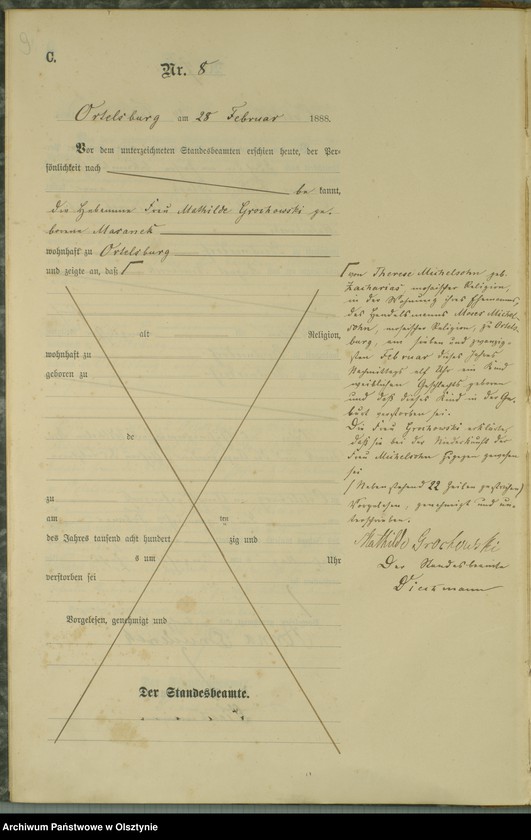 C.
Nr. 8
Ortelsburg am 28 Februar 1888.
Vor dem unterzeichneten Standesbeamten erschien heute, der Per-
sönlichkeit nach
be kannt,
die Hebamme Frau Mathilde Grochowski ge-
borene Maxanek
wohnhaft zu Ortelsburg
und zeigte an, daß
von Therese Michelsohn geb.
Zacharias, mosaischer Religion,
in der Wohnung ihres Ehemannes,
des Handelsmanns Moses Michel-
sohn, mosaischer Religion, zu Ortels-
burg, am sieben und zwanzig-
sten Februar dieses Jahres
Nachmittags elf Uhr ein Kind
weiblichen Geschlechts geboren
und daß dieses Kind in der Ge-
burt verstorben sei.
Die Frau Grochowski erklärte,
daß sie bei der Niederkunft der
Frau Michelsohn zugegen gewesen
sei
/ Neben stehend 22 Zeilen gestrichen /
Vorgelesen, genehmigt und un-
terschrieben.
Mathilde Grochowski
Der Standesbeamte
Dieckmann
alt
Religion,
wohnhaft zu
geboren zu
de
zu
am ten
des Jahres tausend acht hundert zig und
s um Uhr
verstorben sei
Vorgelesen, genehmigt und
Der Standesbeamte.
Archiwum Państwowe w Olsztynie